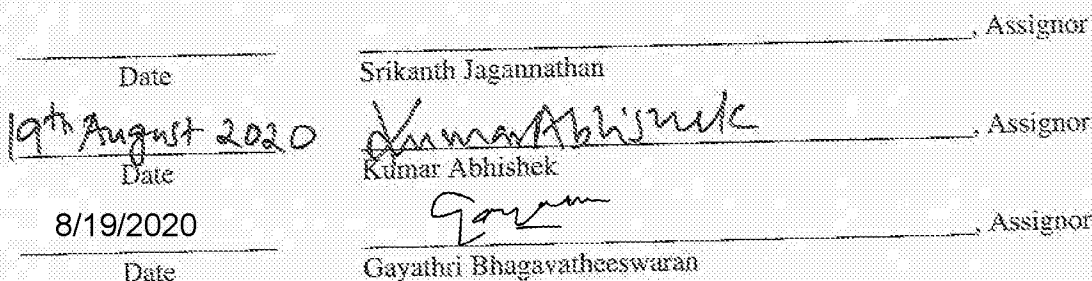 , Assignor
Date Srikanth Jagannathan
19th August 2020 Kumar Abhishek , Assignor
Date Kumar Abhishek
8/19/2020 Gayathri , Assignor
Date Gayathri Bhagavatheeswaran